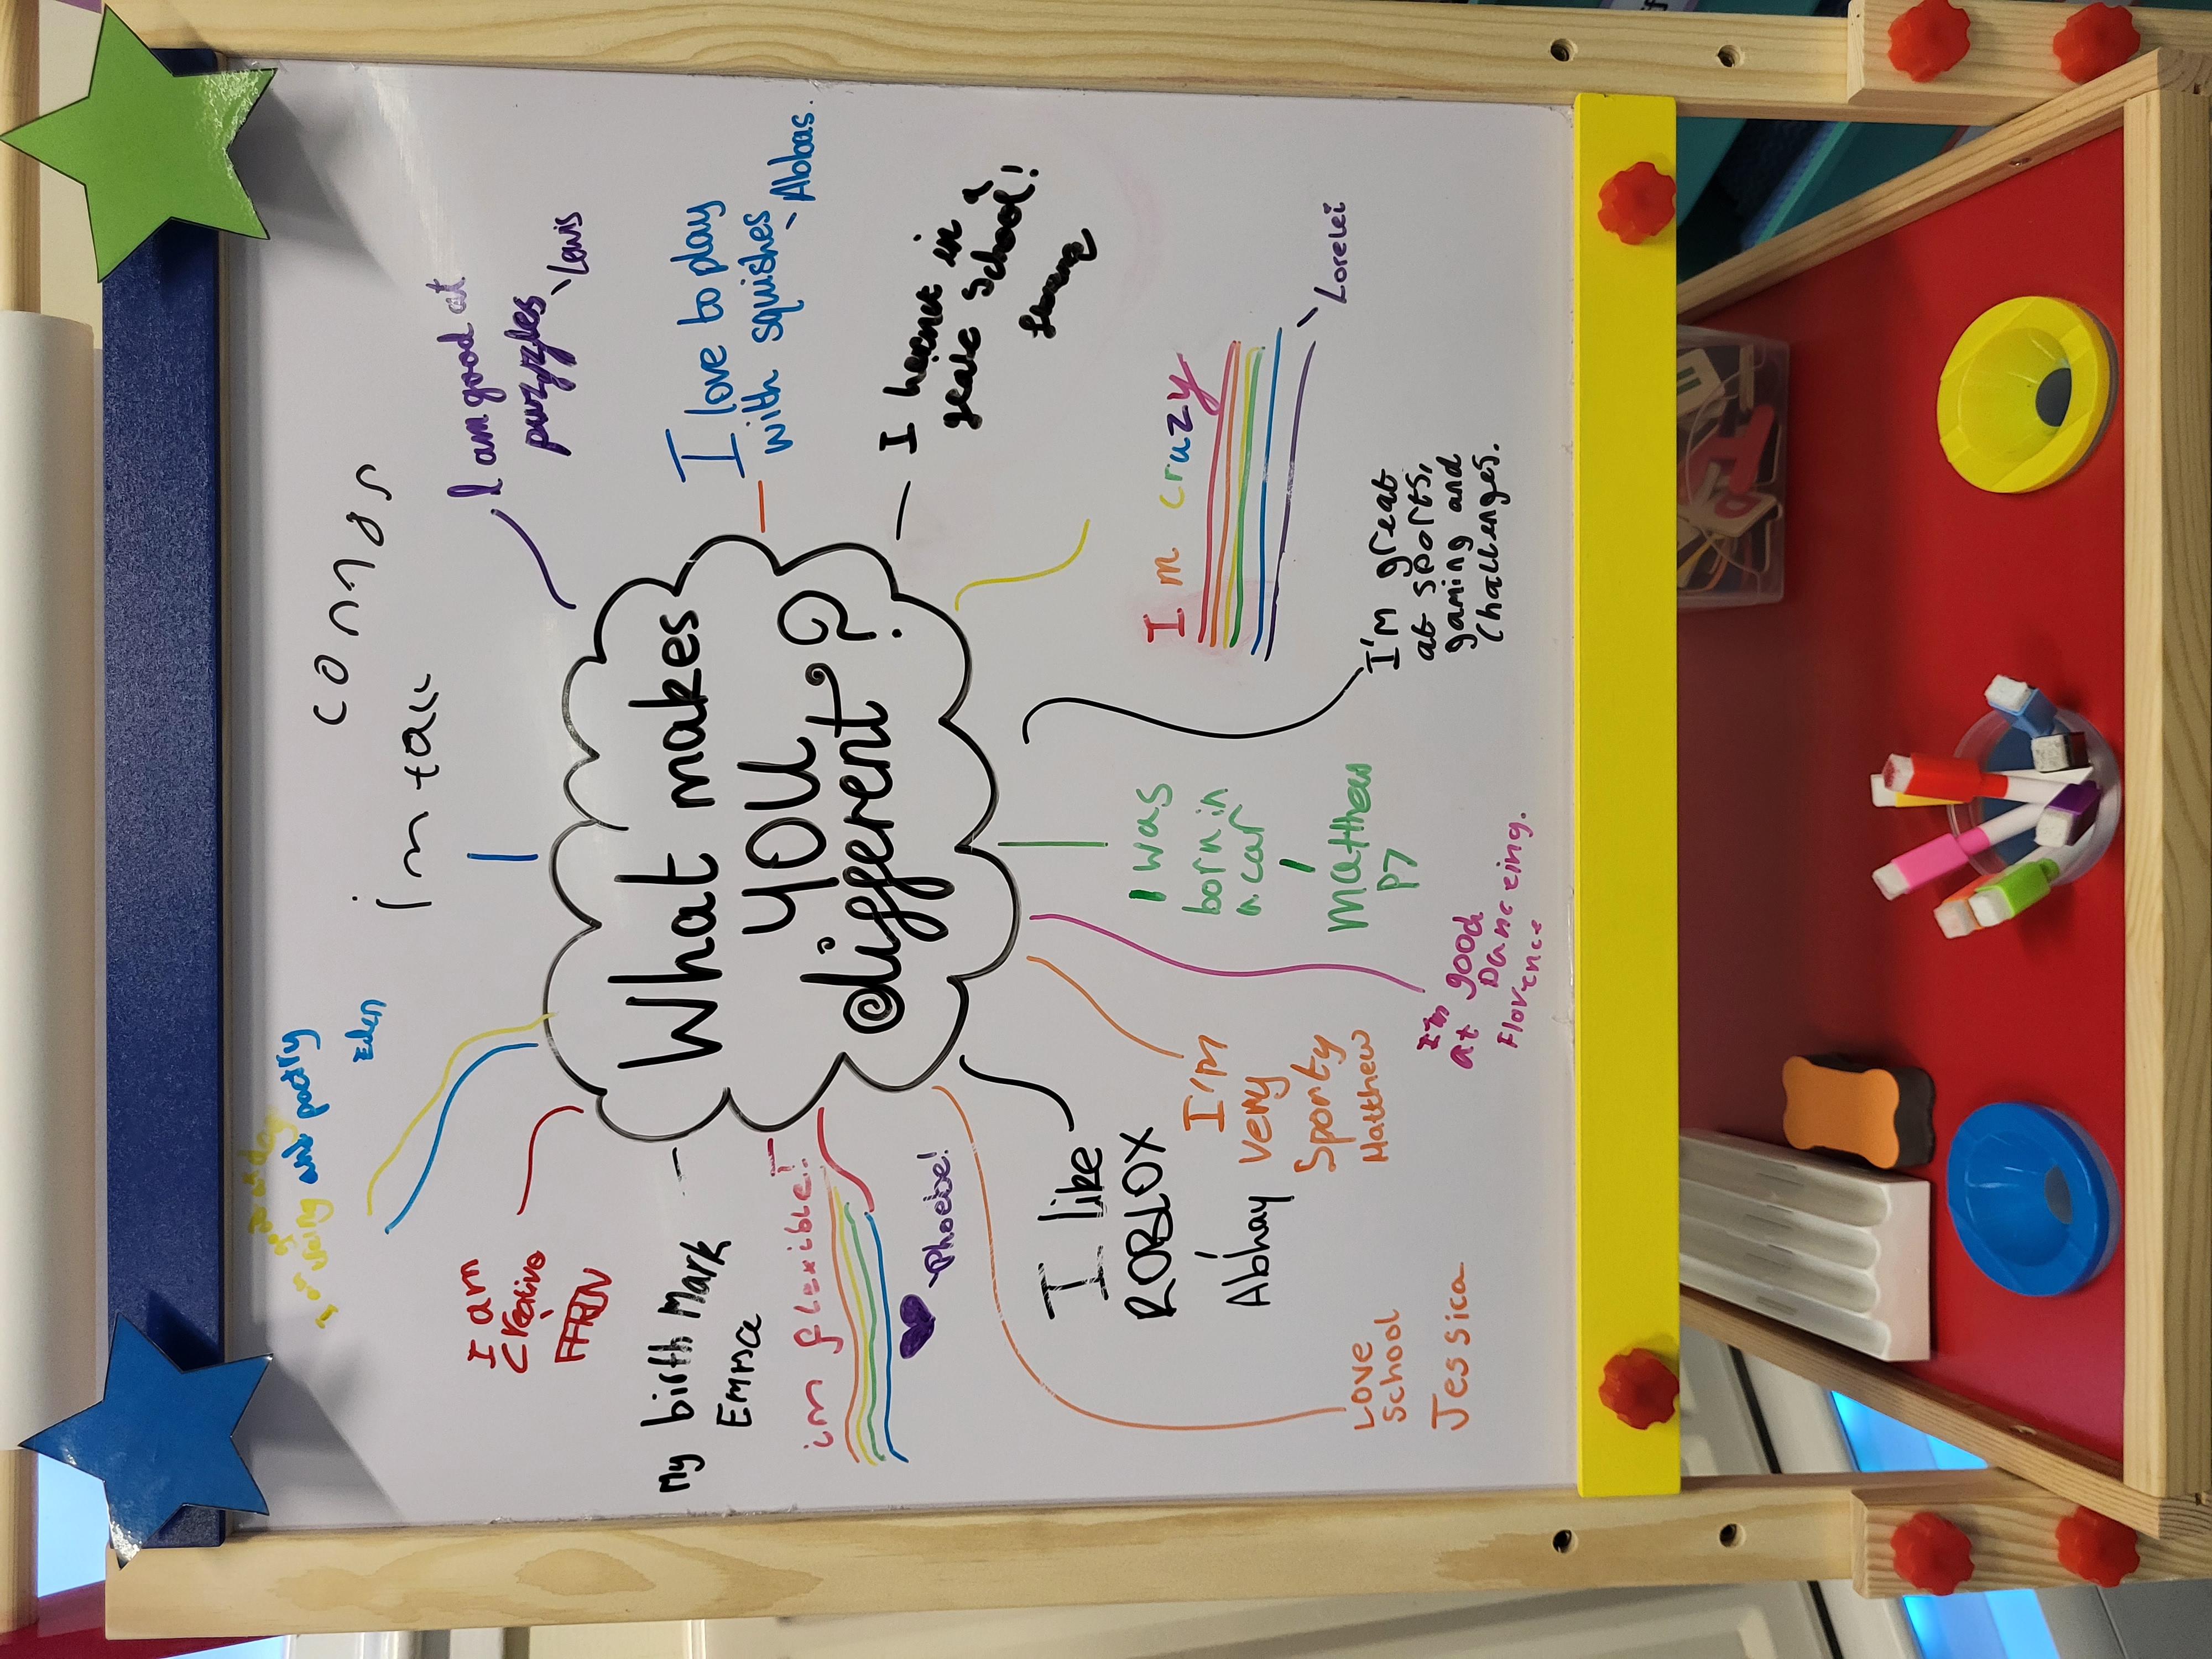 What makes
you
different?
conor
im tall
and poetry
Eden
I am good at
puzzles
- Lewis
I love to play
with squishes
- Abbas.
- I
in
School!
I m crazy
- Lorelei
I'm great
at sports,
gaming and
Challenges.
I was
born in
a car
-
Matthew
P7
I'm good
at Dance eing.
Florence
I'm
very
Sporty
Matthew
I like
ROBLOX
-
Abhay
LOVE
School
Jessica
im flexible!
-Phoebe!
My birth Mark
I am
Creative
-